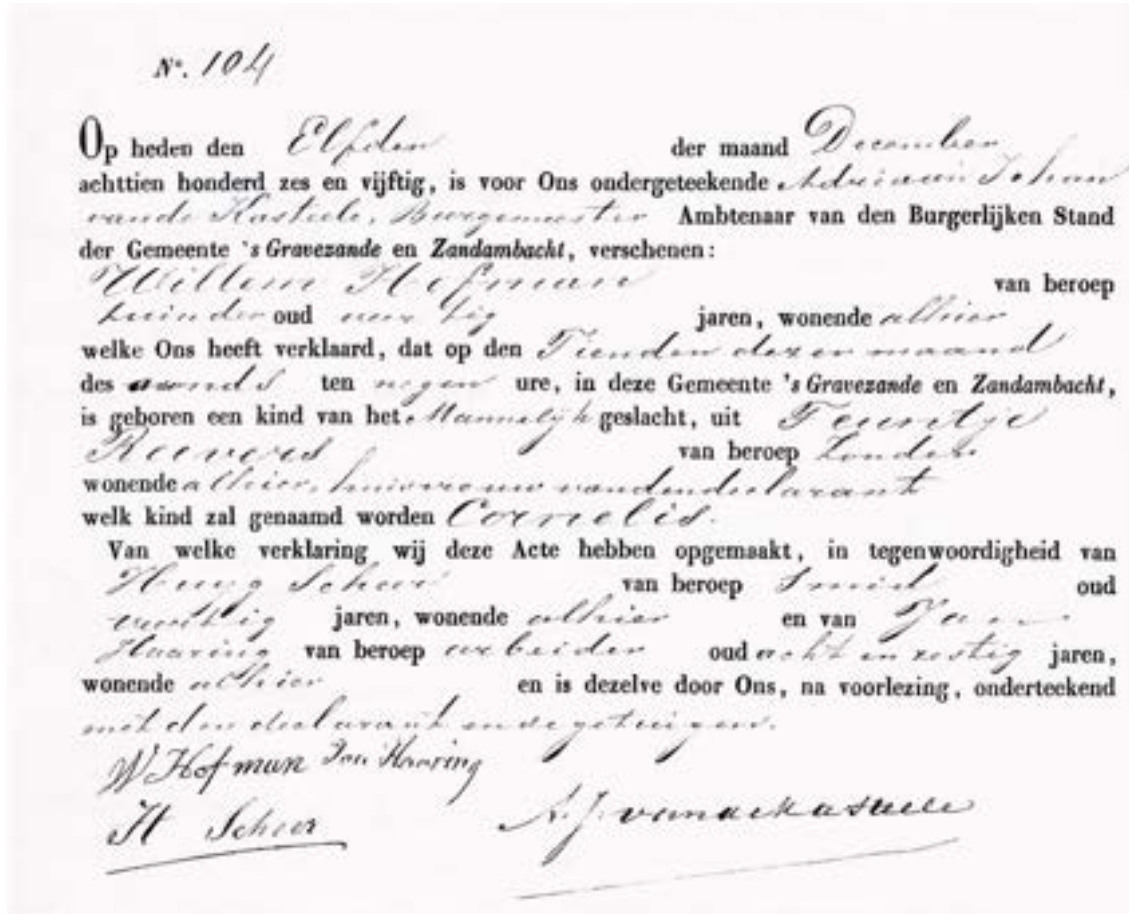 N°. 104
Op heden den Elfden der maand December
achttien honderd zes en vijftig, is voor Ons ondergeteekende Adriaan Johan
van de Kasteele, Burgemeester Ambtenaar van den Burgerlijken Stand
der Gemeente 's Gravezande en Zandambacht, verschenen:
Willem Hofman van beroep
tuinder oud veertig jaren, wonende alhier
welke Ons heeft verklaard, dat op den Tienden dezer maand
des avonds ten negen ure, in deze Gemeente 's Gravezande en Zandambacht,
is geboren een kind van het Mannelijk geslacht, uit Teuntje
Reevers van beroep Zonder
wonende alhier, huisvrouw van den declarant
welk kind zal genaamd worden Cornelis.
Van welke verklaring wij deze Acte hebben opgemaakt, in tegenwoordigheid van
Huug Scheer van beroep Smid oud
jaren, wonende alhier en van Jan
Haaring van beroep arbeider oud acht en zestig jaren,
wonende alhier en is dezelve door Ons, na voorlezing, onderteekend
met den declarant en de getuigen.
W Hofman Jan Haaring
H Scheer A. J. van de Kasteele